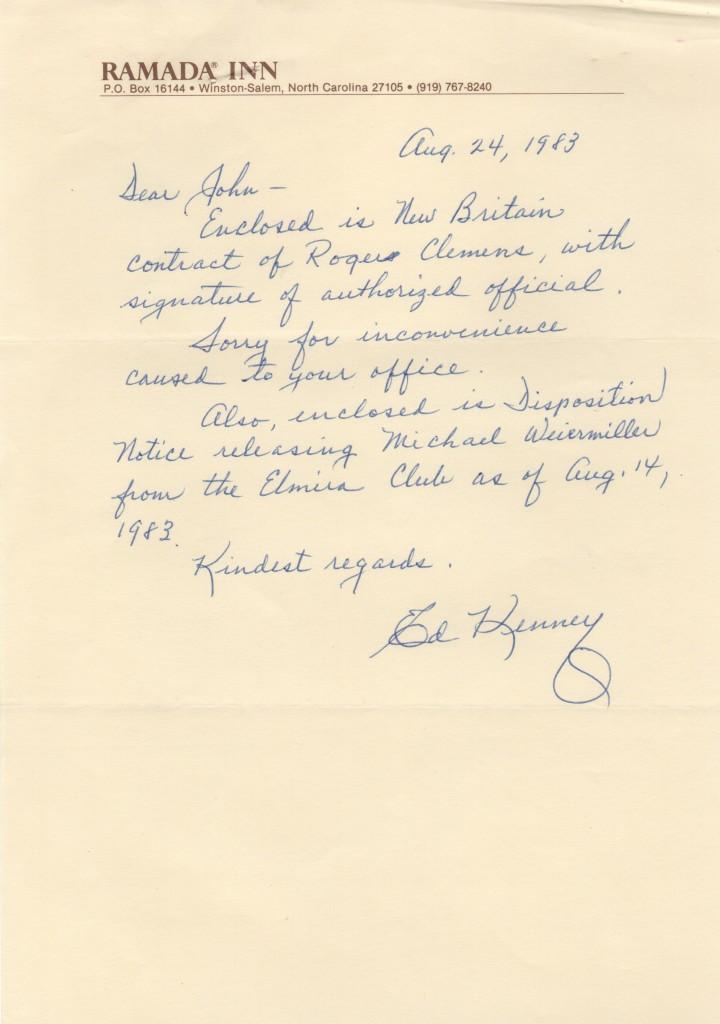 RAMADA® INN
P.O. Box 16144 • Winston-Salem, North Carolina 27105 • (919) 767-8240
Aug. 24, 1983
Dear John –
Enclosed is New Britain
contract of Roger Clemens, with
signature of authorized official.
Sorry for inconvenience
caused to your office.
Also, enclosed is Disposition
Notice releasing Michael Weiermiller
from the Elmira Club as of Aug. 14,
1983.
Kindest regards.
Ed Kenney